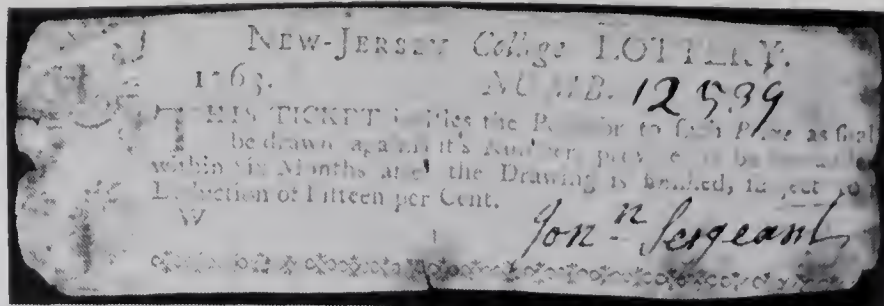 NEW-JERSEY College LOTTERY.
1763. NUMB. 12539
THIS TICKET the to such as shall
be drawn against it's Number,
within Six Months the Drawing is finished, to
Deduction of Fifteen per Cent.
W
Jonn Sergeant